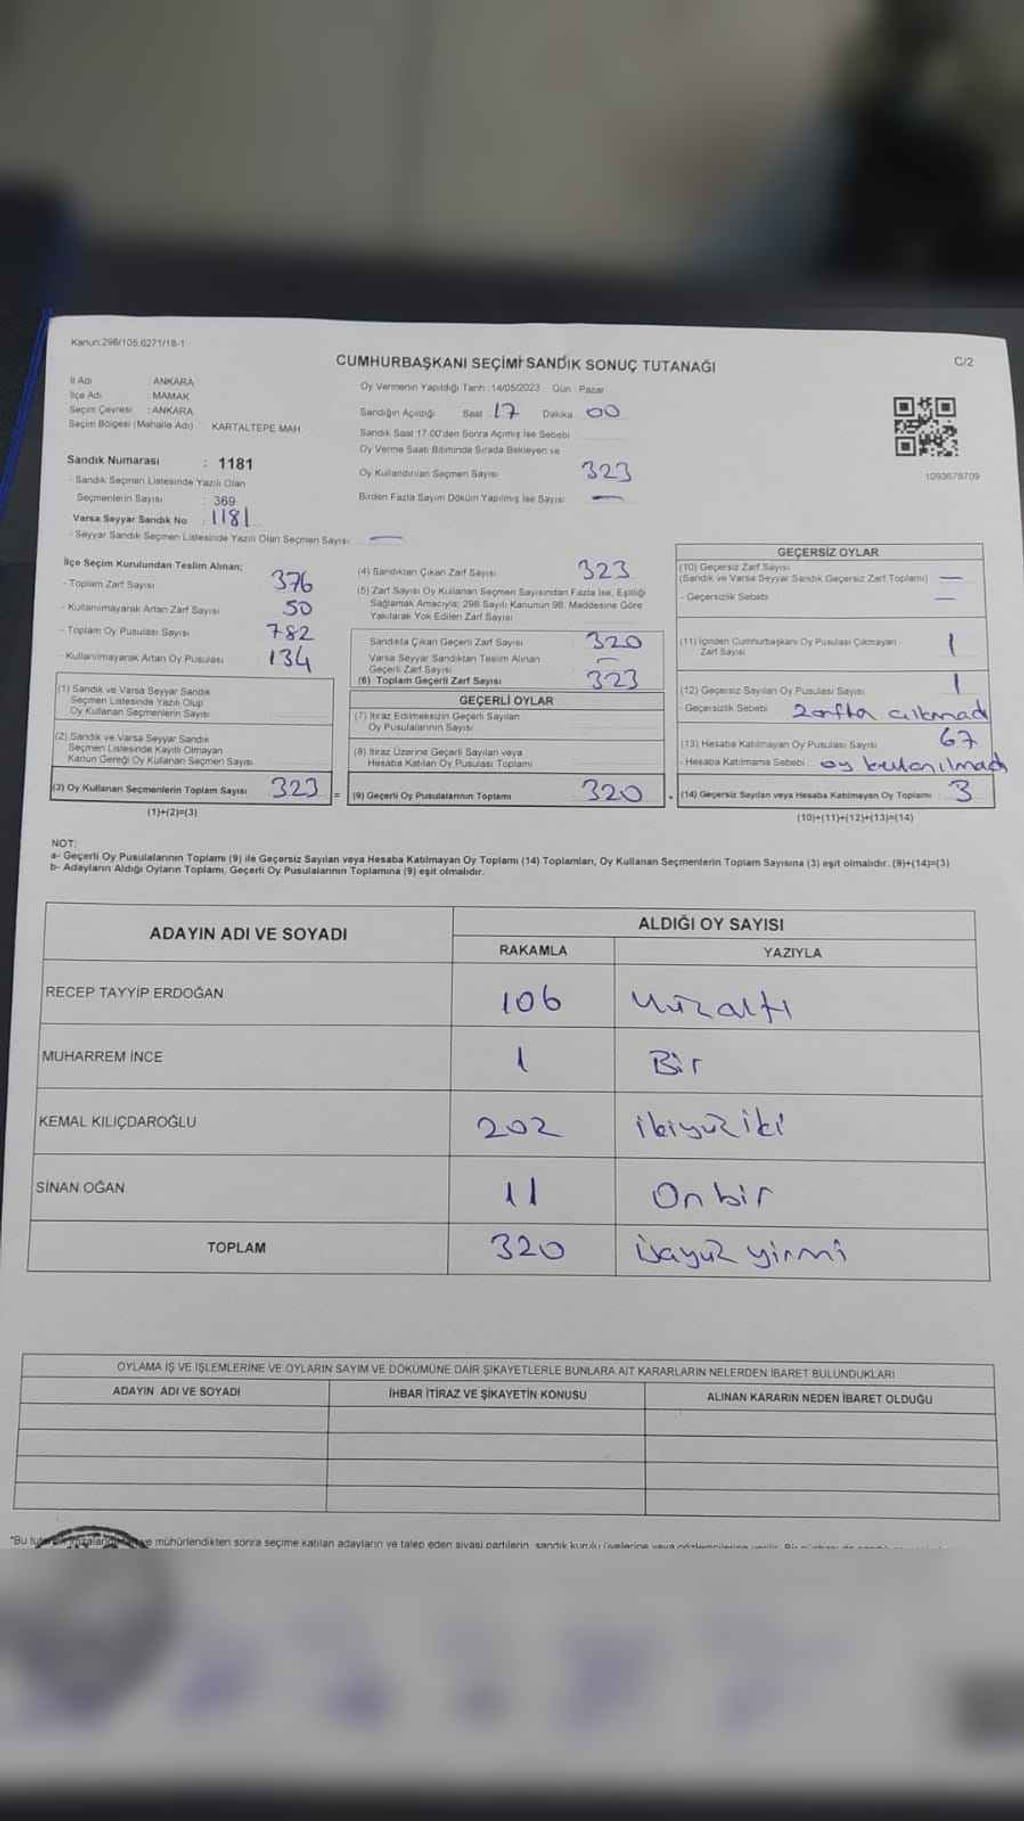 Kanun:298/105.6271/18-1
CUMHURBAŞKANI SEÇİMİ SANDIK SONUÇ TUTANAĞI
C/2
İl Adı : ANKARA
İlçe Adı : MAMAK
Seçim Çevresi : ANKARA
Seçim Bölgesi (Mahalle Adı) KARTALTEPE MAH.
Oy Vermenin Yapıldığı Tarih: 14/05/2023 Gün: Pazar
Sandığın Açıldığı Saat 17 Dakika 00
Sandık Saat 17:00'den Sonra Açılmış İse Sebebi
Oy Verme Saati Bitiminde Sırada Bekleyen ve
Oy Kullandırılan Seçmen Sayısı 323
Birden Fazla Sayım Döküm Yapılmış İse Sayısı —
1093678709
Sandık Numarası : 1181
- Sandık Seçmen Listesinde Yazılı Olan
Seçmenlerin Sayısı : 369
Varsa Seyyar Sandık No : 1181
- Seyyar Sandık Seçmen Listesinde Yazılı Olan Seçmen Sayısı: —
İlçe Seçim Kurulundan Teslim Alınan;
- Toplam Zarf Sayısı 376
- Kullanılmayarak Artan Zarf Sayısı 50
- Toplam Oy Pusulası Sayısı 782
- Kullanılmayarak Artan Oy Pusulası 134
(1) Sandık ve Varsa Seyyar Sandık
Seçmen Listesinde Yazılı Olup
Oy Kullanan Seçmenlerin Sayısı
(2) Sandık ve Varsa Seyyar Sandık
Seçmen Listesinde Kayıtlı Olmayan
Kanun Gereği Oy Kullanan Seçmen Sayısı
(3) Oy Kullanan Seçmenlerin Toplam Sayısı 323 =
(1)+(2)=(3)
(4) Sandıktan Çıkan Zarf Sayısı 323
(5) Zarf Sayısı Oy Kullanan Seçmen Sayısından Fazla İse, Eşitliği
Sağlamak Amacıyla; 298 Sayılı Kanunun 98. Maddesine Göre
Yakılarak Yok Edilen Zarf Sayısı
Sandıkta Çıkan Geçerli Zarf Sayısı 320
Varsa Seyyar Sandıktan Teslim Alınan
Geçerli Zarf Sayısı —
(6) Toplam Geçerli Zarf Sayısı 323
GEÇERLİ OYLAR
(7) İtiraz Edilmeksizin Geçerli Sayılan
Oy Pusulalarının Sayısı
(8) İtiraz Üzerine Geçerli Sayılan veya
Hesaba Katılan Oy Pusulası Toplamı
(9) Geçerli Oy Pusulalarının Toplamı 320
GEÇERSİZ OYLAR
(10) Geçersiz Zarf Sayısı
(Sandık ve Varsa Seyyar Sandık Geçersiz Zarf Toplamı) —
- Geçersizlik Sebebi —
(11) İçinden Cumhurbaşkanı Oy Pusulası Çıkmayan
Zarf Sayısı 1
(12) Geçersiz Sayılan Oy Pusulası Sayısı 1
- Geçersizlik Sebebi zarfta çıkmadı
(13) Hesaba Katılmayan Oy Pusulası Sayısı 67
- Hesaba Katılmama Sebebi oy kullanılmadı
(14) Geçersiz Sayılan veya Hesaba Katılmayan Oy Toplamı 3
(10)+(11)+(12)+(13)=(14)
NOT:
a- Geçerli Oy Pusulalarının Toplamı (9) ile Geçersiz Sayılan veya Hesaba Katılmayan Oy Toplamı (14) Toplamları, Oy Kullanan Seçmenlerin Toplam Sayısına (3) eşit olmalıdır. (9)+(14)=(3)
b- Adayların Aldığı Oyların Toplamı, Geçerli Oy Pusulalarının Toplamına (9) eşit olmalıdır.
ADAYIN ADI VE SOYADI
ALDIĞI OY SAYISI
RAKAMLA YAZIYLA
RECEP TAYYİP ERDOĞAN 106 Yüzaltı
MUHARREM İNCE 1 Bir
KEMAL KILIÇDAROĞLU 202 ikiyüziki
SİNAN OĞAN 11 Onbir
TOPLAM 320 üçyüz yirmi
OYLAMA İŞ VE İŞLEMLERİNE VE OYLARIN SAYIM VE DÖKÜMÜNE DAİR ŞİKAYETLERLE BUNLARA AİT KARARLARIN NELERDEN İBARET BULUNDUKLARI
ADAYIN ADI VE SOYADI İHBAR İTİRAZ VE ŞİKAYETİN KONUSU ALINAN KARARIN NEDEN İBARET OLDUĞU
"Bu ve mühürlendikten sonra seçime katılan adayların ve talep eden siyasi partilerin, sandık kurulu üyelerine veya